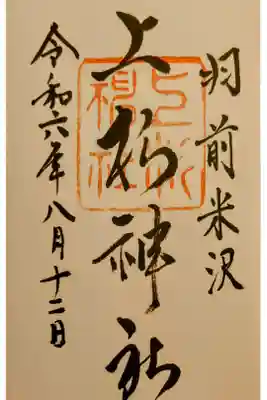 羽前米沢
上杉神社
令和六年八月十二日
上杉神社